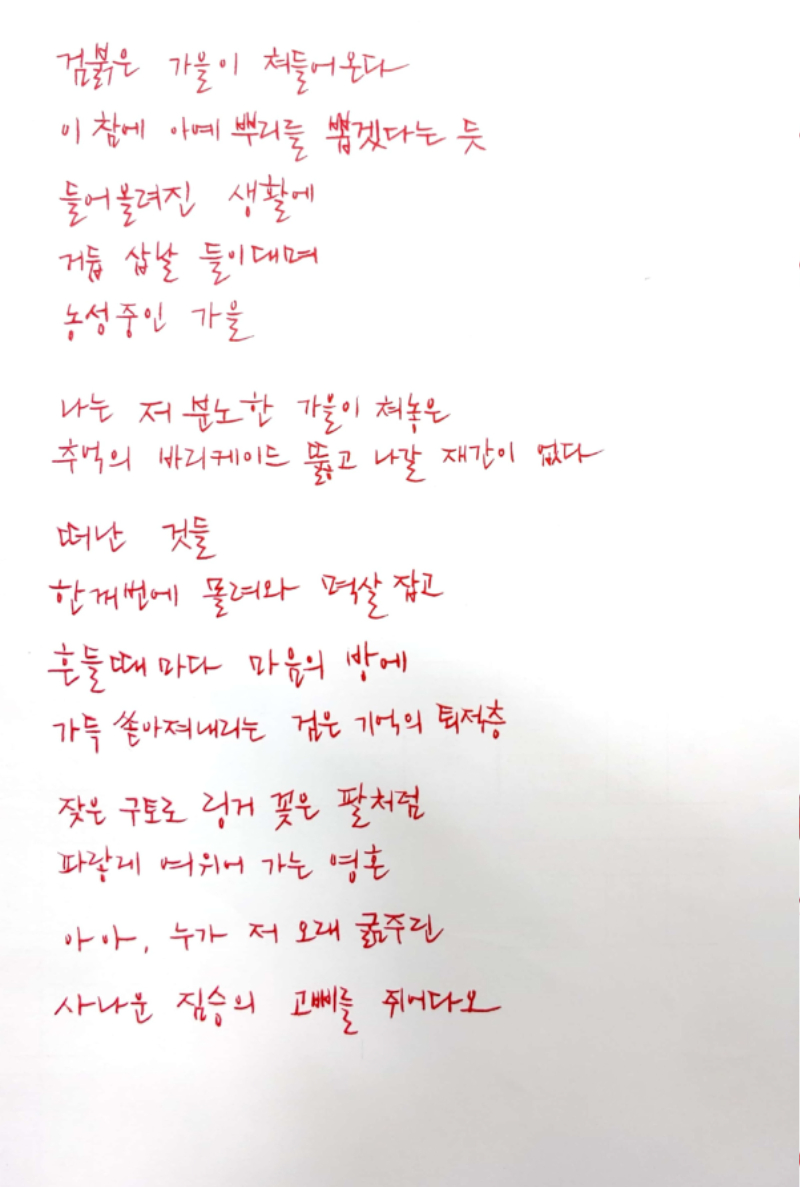 검붉은 가을이 쳐들어온다
이 참에 아예 뿌리를 뽑겠다는 듯
들어올려진 생활에
거듭 삽날 들이대며
농성중인 가을
나는 저 분노한 가을이 쳐놓은
추억의 바리케이드 뚫고 나갈 재간이 없다
떠난 것들
한꺼번에 몰려와 멱살 잡고
흔들때마다 마음의 방에
가득 쏟아져내리는 검은 기억의 퇴적층
잦은 구토로 링거 꽂은 팔처럼
파랗게 여위어 가는 영혼
아아, 누가 저 오래 굶주린
사나운 짐승의 고삐를 쥐어다오